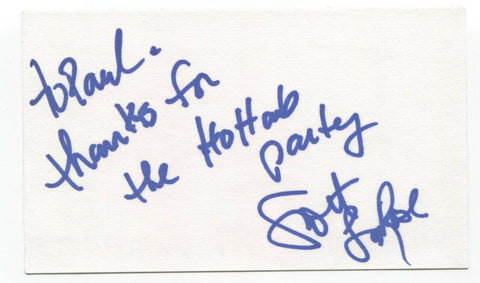 to Paul.
thanks for
the Hot tub
party
Scott